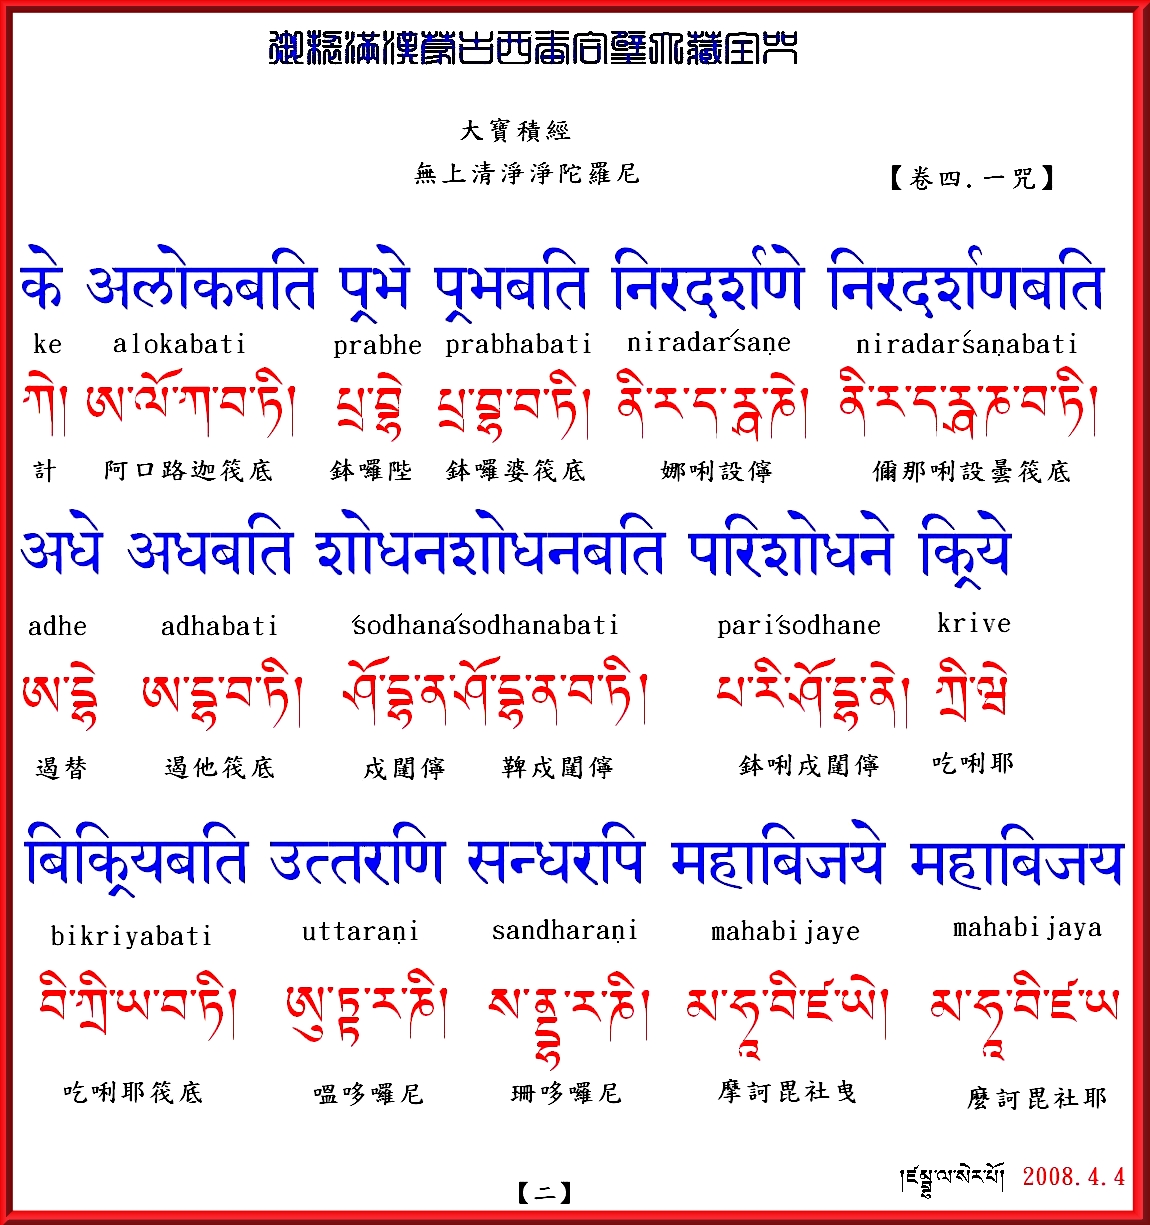 御製滿漢蒙古西番合璧大藏全咒
大寶積經
無上清淨淨陀羅尼 【卷四.一咒】
के अलोकबति प्रभे प्रभबति निरदर्शणे निरदर्शणबति
ke alokabati prabhe prabhabati niradarśaṇe niradarśaṇabati
ཀེ། ཨ་ལོ་ཀ་བ་ཏི། པྲ་བྷེ པྲ་བྷ་བ་ཏི། ནི་ར་ད་རྴ་ཎེ། ནི་ར་ད་རྴ་ཎ་བ་ཏི།
計 阿口路迦筏底 鉢囉陛 鉢囉婆筏底 娜唎設儜 儞那唎設曇筏底
अधे अधबति शोधनशोधनबति परिशोधने क्रिये
adhe adhabati śodhanaśodhanabati pariśodhane krive
ཨ་དྷེ ཨ་དྷ་བ་ཏི། ཤོ་དྷ་ན་ཤོ་དྷ་ན་བ་ཏི། པ་རི་ཤོ་དྷ་ནེ། ཀྲི་ཝེ
遏替 遏他筏底 戍闥儜 鞞戍闥儜 鉢唎戍闥儜 吃唎耶
बिक्रियबति उत्तरणि सन्धरपि महाबिजये महाबिजय
bikriyabati uttaraṇi sandharaṇi mahabijaye mahabijaya
བི་ཀྲི་ཡ་བ་ཏི། ཨུ་ཏྟ་ར་ཎི། ས་ནྡྷ་ར་ཎི། མ་ཧཱ་བི་ཛ་ཡེ། མ་ཧཱ་བི་ཛ་ཡ
吃唎耶筏底 嗢哆囉尼 珊哆囉尼 摩訶毘社曳 麼訶毘社耶
།ཛམྦྷ་ལ་སེར་པོ། 2008.4.4
【二】